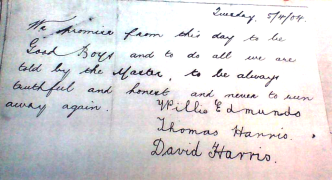 Tuesday, 5/4/04.
We promise from this day to be
Good Boys and to do all we are
told by the Master, to be always
truthful and honest and never to run
away again. Willie Edmunds
Thomas Harris.
David Harris.